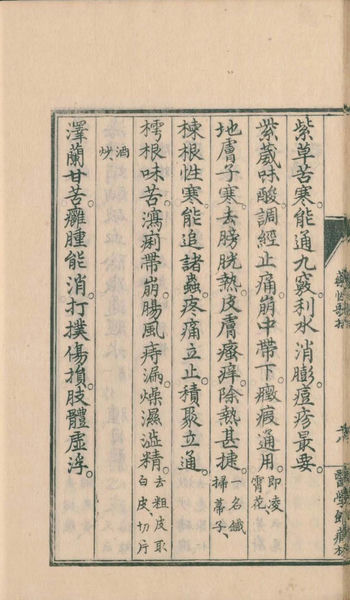 紫草苦寒。能通九竅。利水消膨。痘疹最要。
紫葳味酸。調經止痛。崩中帶下。癥瘕通用。即凌霄花、
地膚子寒。去膀胱熱。皮膚瘙痒。除熱甚捷。一名鐵掃蒂子、
楝根性寒。能追諸蟲。疼痛立止。積聚立通。
樗根味苦。瀉痢帶崩。腸風痔漏。燥濕澁精。去粗皮取白皮、切片酒炒
澤蘭甘苦。癰腫能消。打撲傷損。肢體虛浮。